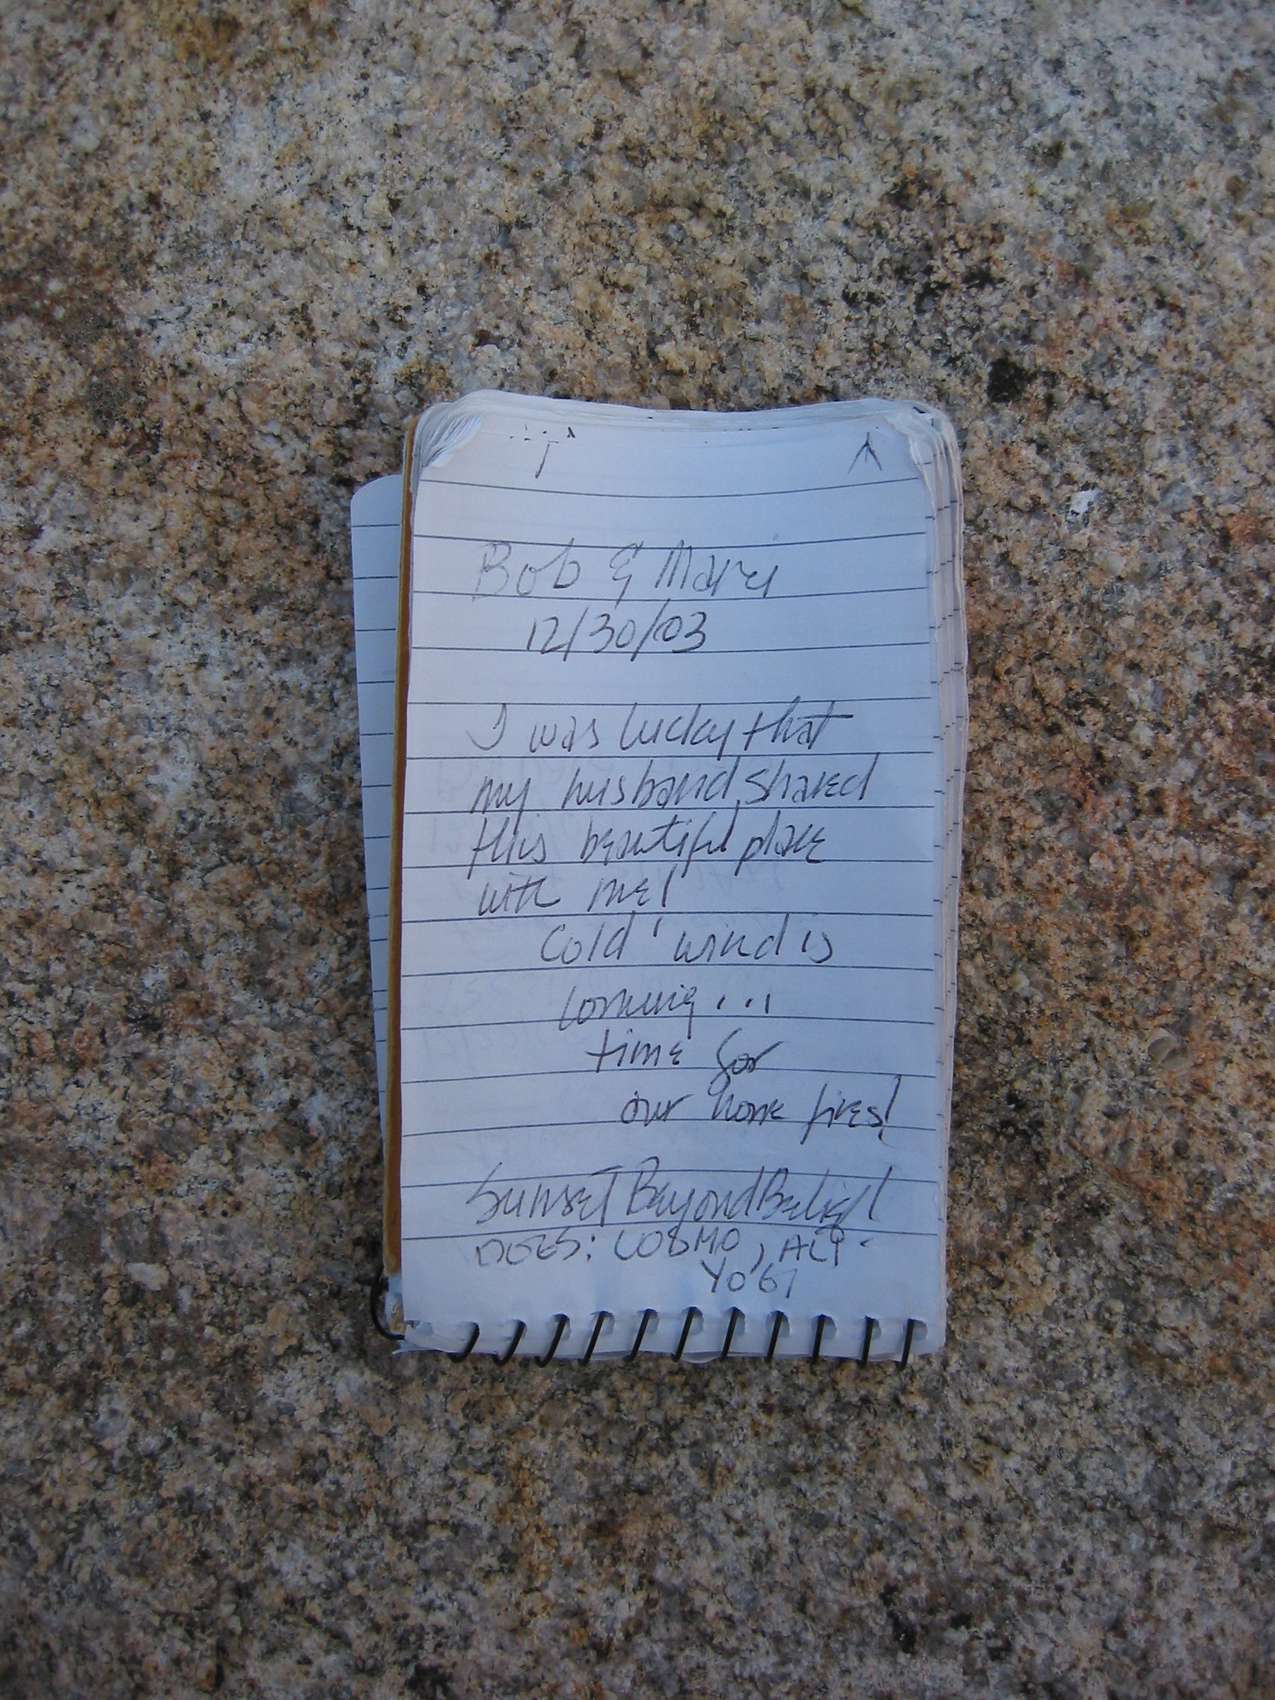 Bob & Mari
12/30/03
I was lucky that
my husband shared
this beautiful place
with me!
Cold wind is
coming...
time for
our home fires!
Sunset Beyond Belief!
DOGS: COSMO, ALY
YOGI